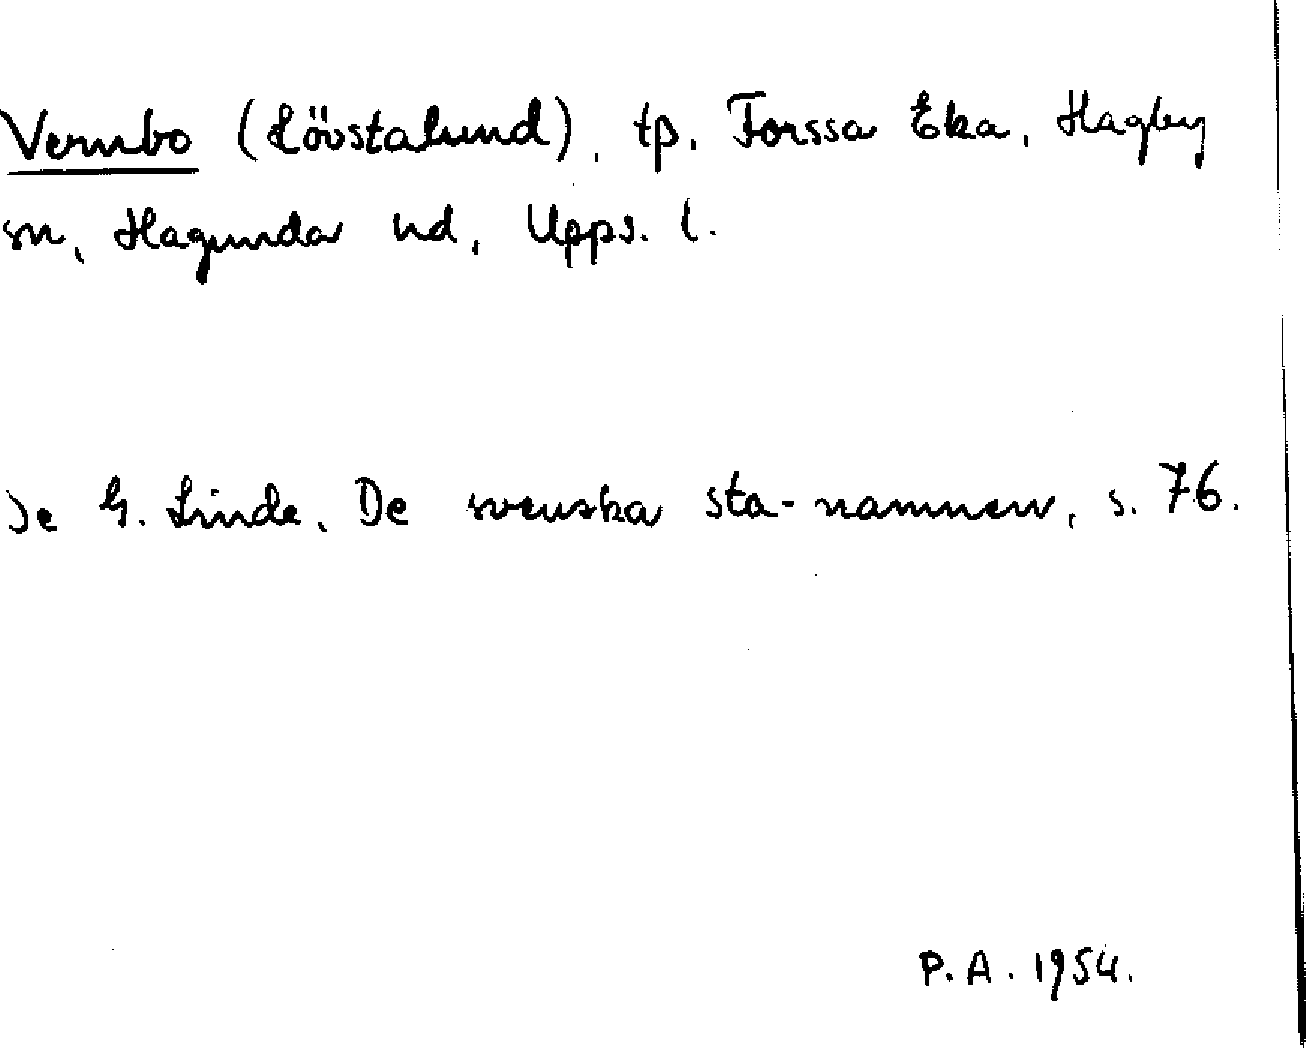 Vermbo (Lövstalund), tp. Forssa Eka, Hagby
sn, Hagunda hd, Upps. l.
Se G. Linde, De svenska sta-namnen, s. 76.
P.A. 1954.